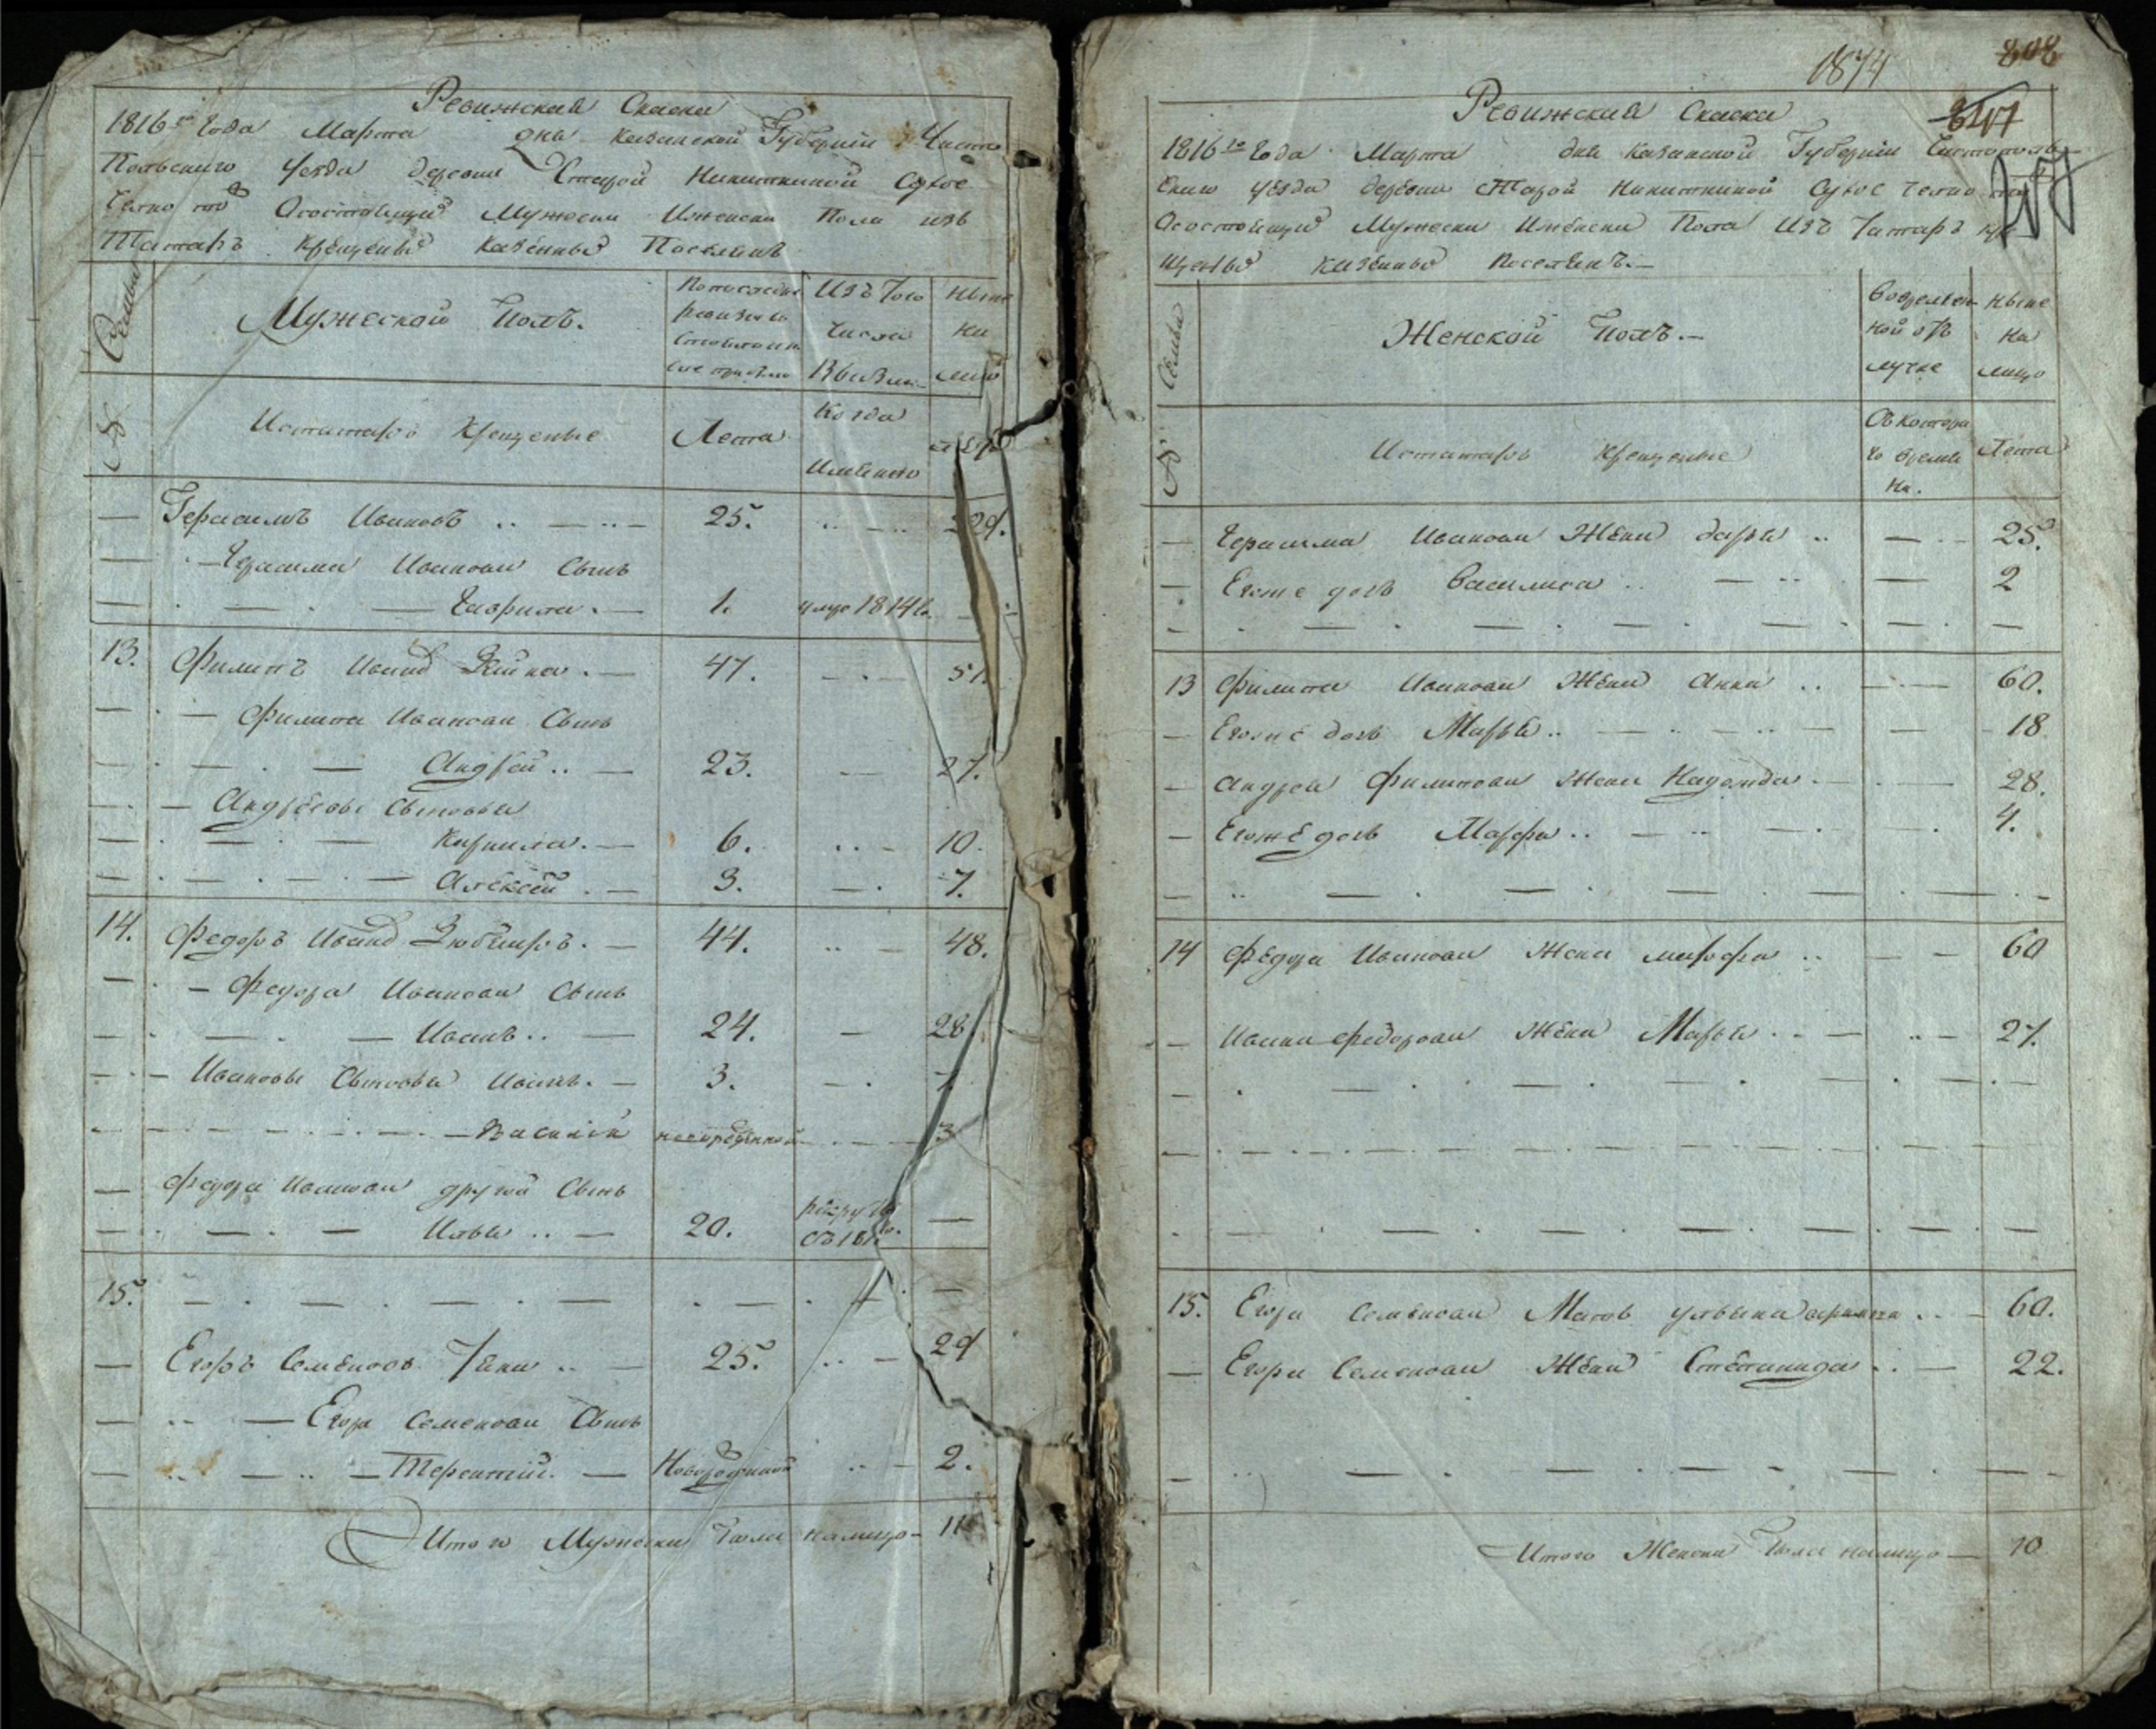 Ревижская Скаска
1816го Года Марта дня Казанской Губернии Чисто
Польскаго Уезда деревни Старой Никиткиной Сухое
Челно то ж Осостоящих Мужеска Иженска Пола изъ
Татаръ Крещеных Казенных Поселянъ
Семьи
Мужеской Полъ.
Изъ Того
Числа
Выбыло
ныне
на
лицо
№
Истатаръ Крещеные
Лета
Когда
Имянно
Лета
— Герасимъ Ивановъ .. — 25. .. — .. 29.
— Герасима Иванова Сынъ
— Гаврила. — 1. умре 1814го. —
13. Филипъ Иванов — 47. — . — 51.
— Филипа Иванова Сынъ
— Андрей .. — 23. — 27.
— Андреевы Сыновья
— Кирилла. — 6. .. — 10.
— Алексей . — 3. — . 7.
14. Федоръ Иванов — 44. .. — 48.
— Федора Иванова Сынъ
— Иванъ .. — 24. — 28.
— Ивановы Сыновья Иванъ. — 3. — . 7.
— Василий новорожденной — 3
— Федора Иванова другой Сынъ
— Илья .. — 20. —
15. — . — . — . —
— Егоръ Семеновъ .. — 25. .. — 29
— Егора Семенова Сынъ
— Терентий. — Новорожденной .. — 2.
Итого Мужеска Пола налицо — 11
1874
808
Ревижская Скаска
1816го Года Марта дня Казанской Губернии Чистополь
скаго уезда деревни Старой Никиткиной Сухое Челно то ж
Осостоящих Мужеска Иженска Пола Изъ Татаръ Кре
щеных казенных поселянъ. —
Семьи
Женской Полъ. —
Вовремен
ной от
лучке
ныне
на
лицо
№
Истатаръ Крещеные
Съ котора
го време
на.
Лета
— Герасима Иванова Жена дарья .. — 25.
— Егоже дочь Василиса .. — 2
13 Филипа Иванова Жена Анна .. — 60.
— Егоже дочь Марья .. — 18.
— Андрея Филипова Жена Надежда. — 28.
— Егоже дочь Марфа .. — 4.
14 Федора Иванова Жена марфа .. — 60
— Ивана Федорова Жена Марья. — 27.
15. Егора Семенова Мать ульяна .. — 60.
— Егора Семенова Жена Степанида .. — 22.
Итого Женска Пола налицо — 10